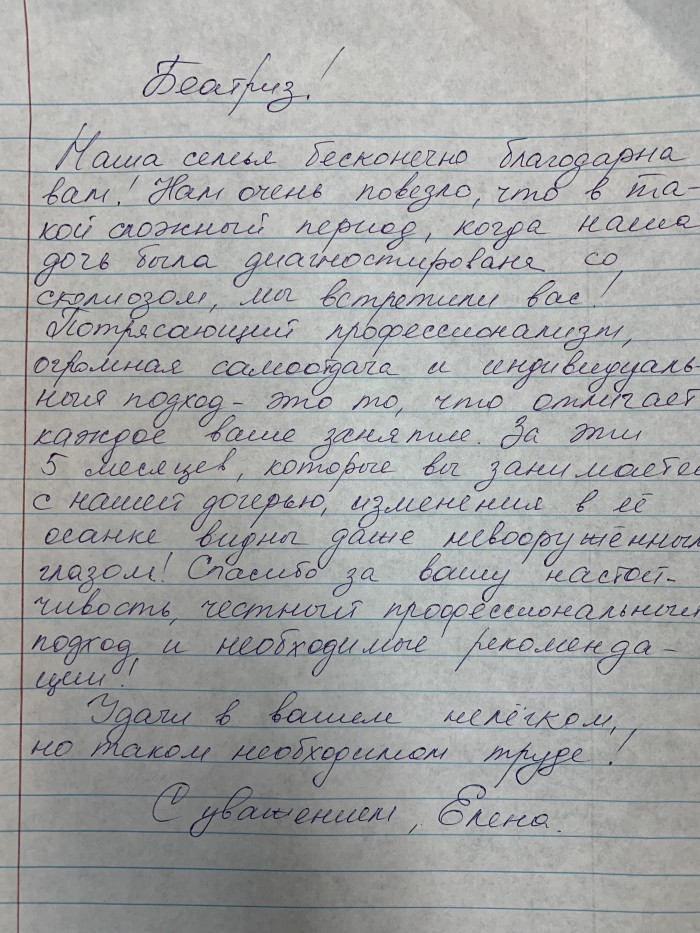 Беатриз!
Наша семья бесконечно благодарна
вам! Нам очень повезло, что в та-
кой сложный период, когда наша
дочь была диагностирована со
сколиозом, мы встретили вас!
Потрясающий профессионализм,
огромная самоотдача и индивидуаль-
ный подход - это то, что отличает
каждое ваше занятие. За эти
5 месяцев, которые вы занимаетес
с нашей дочерью, изменения в её
осанке видны даже невооружённым
глазом! Спасибо за вашу настой-
чивость, честный профессиональный
подход и необходимые рекоменда-
ции!
Удачи в вашем нелёгком,
но таком необходимом труде!
С уважением, Елена.